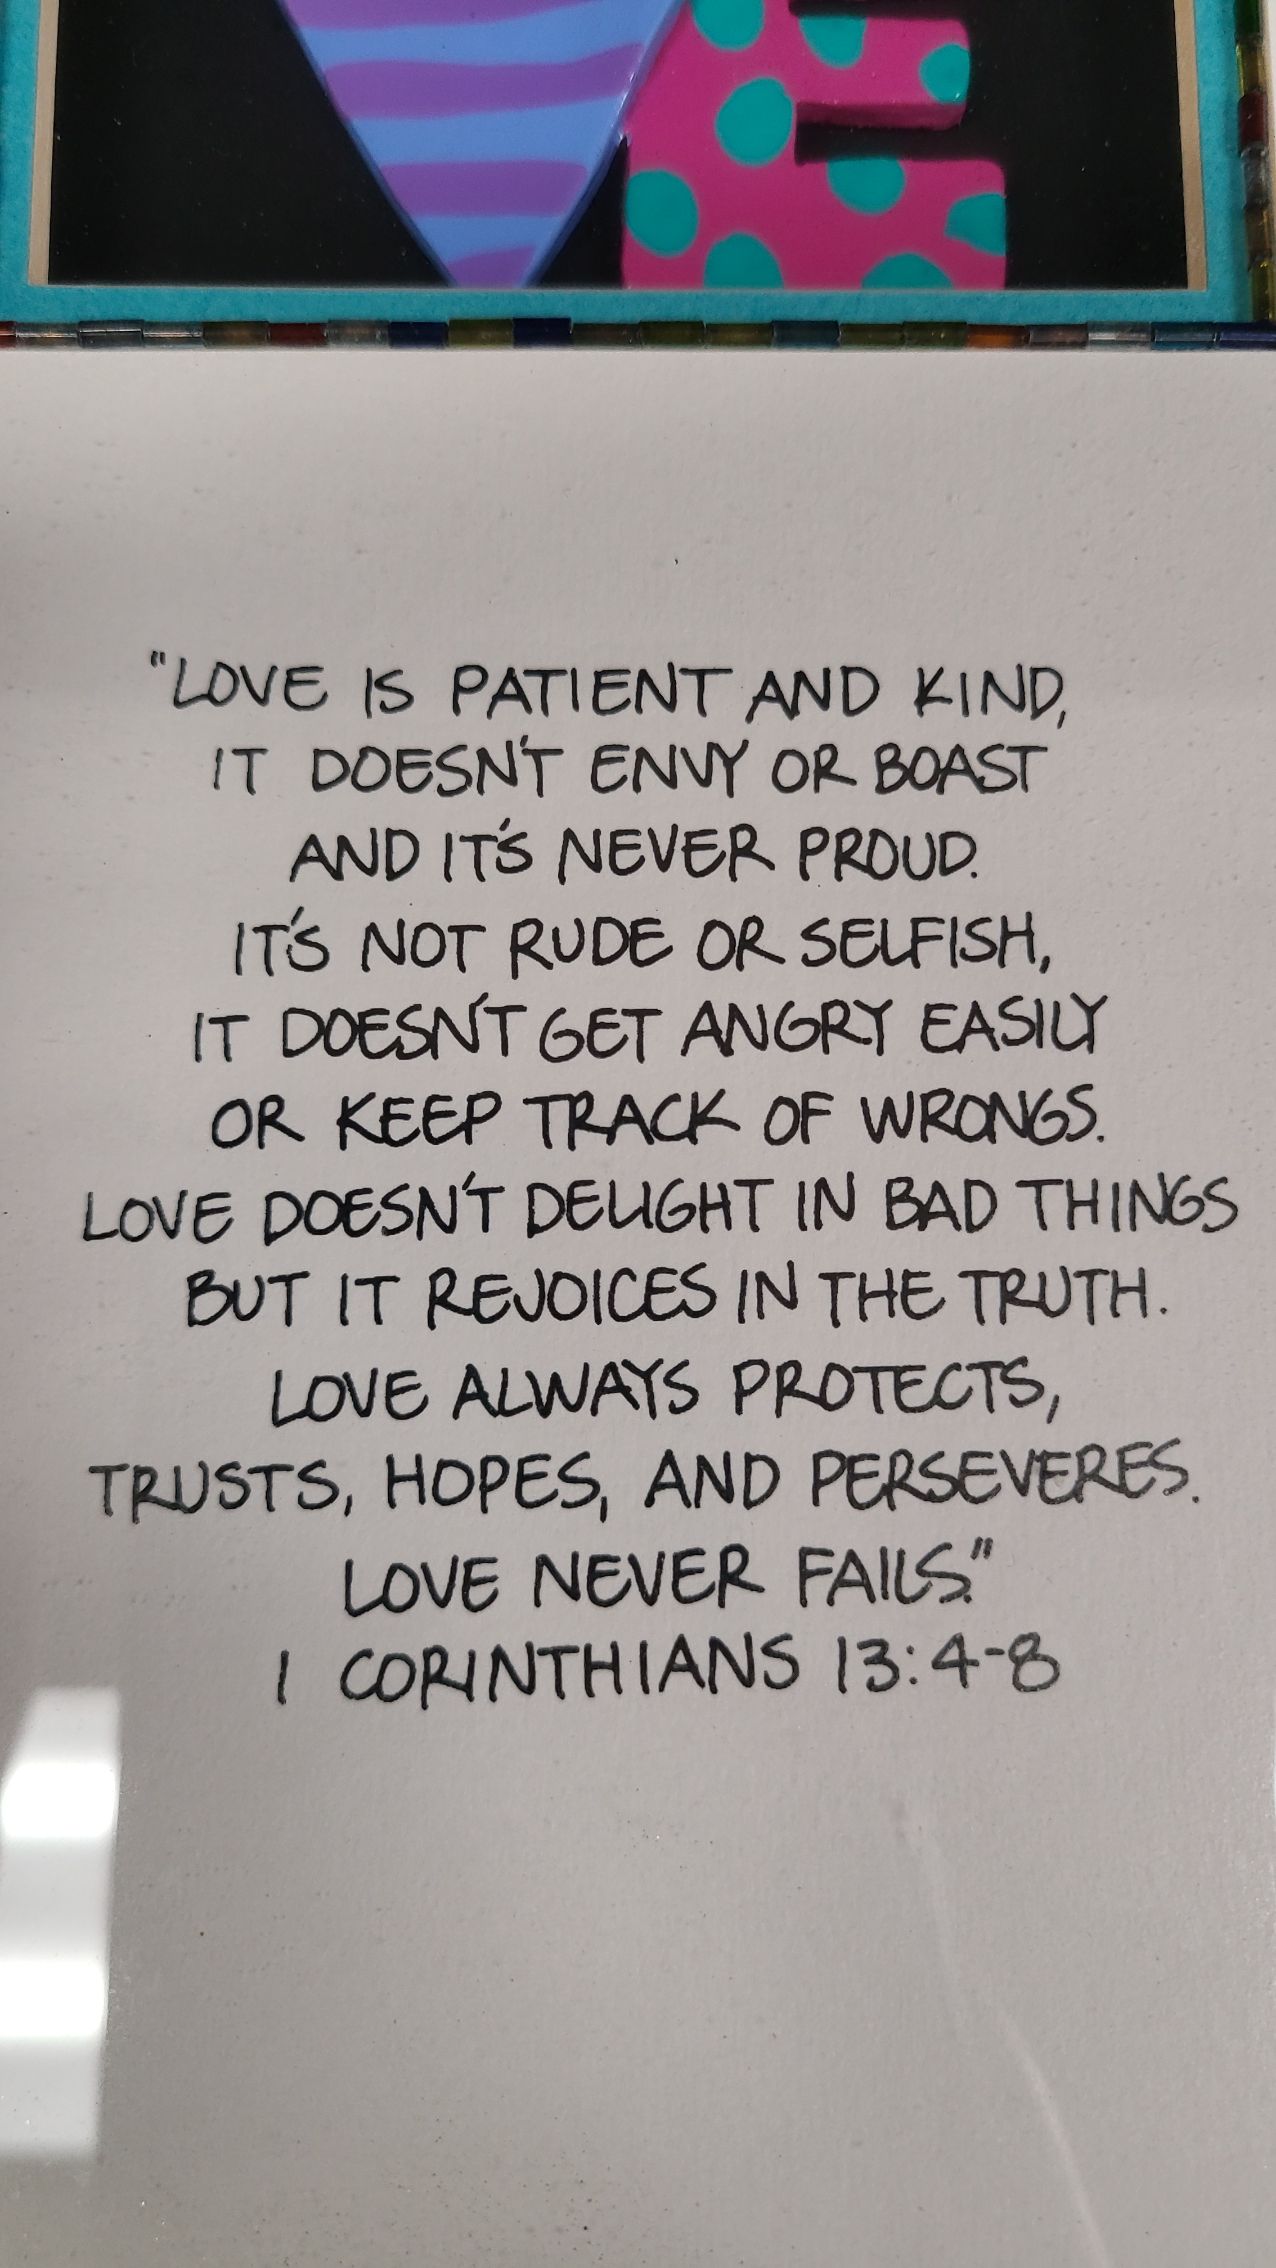 "LOVE IS PATIENT AND KIND,
IT DOESN'T ENVY OR BOAST
AND IT'S NEVER PROUD.
IT'S NOT RUDE OR SELFISH,
IT DOESN'T GET ANGRY EASILY
OR KEEP TRACK OF WRONGS.
LOVE DOESN'T DELIGHT IN BAD THINGS
BUT IT REJOICES IN THE TRUTH.
LOVE ALWAYS PROTECTS,
TRUSTS, HOPES, AND PERSEVERES.
LOVE NEVER FAILS."
1 CORINTHIANS 13:4-8